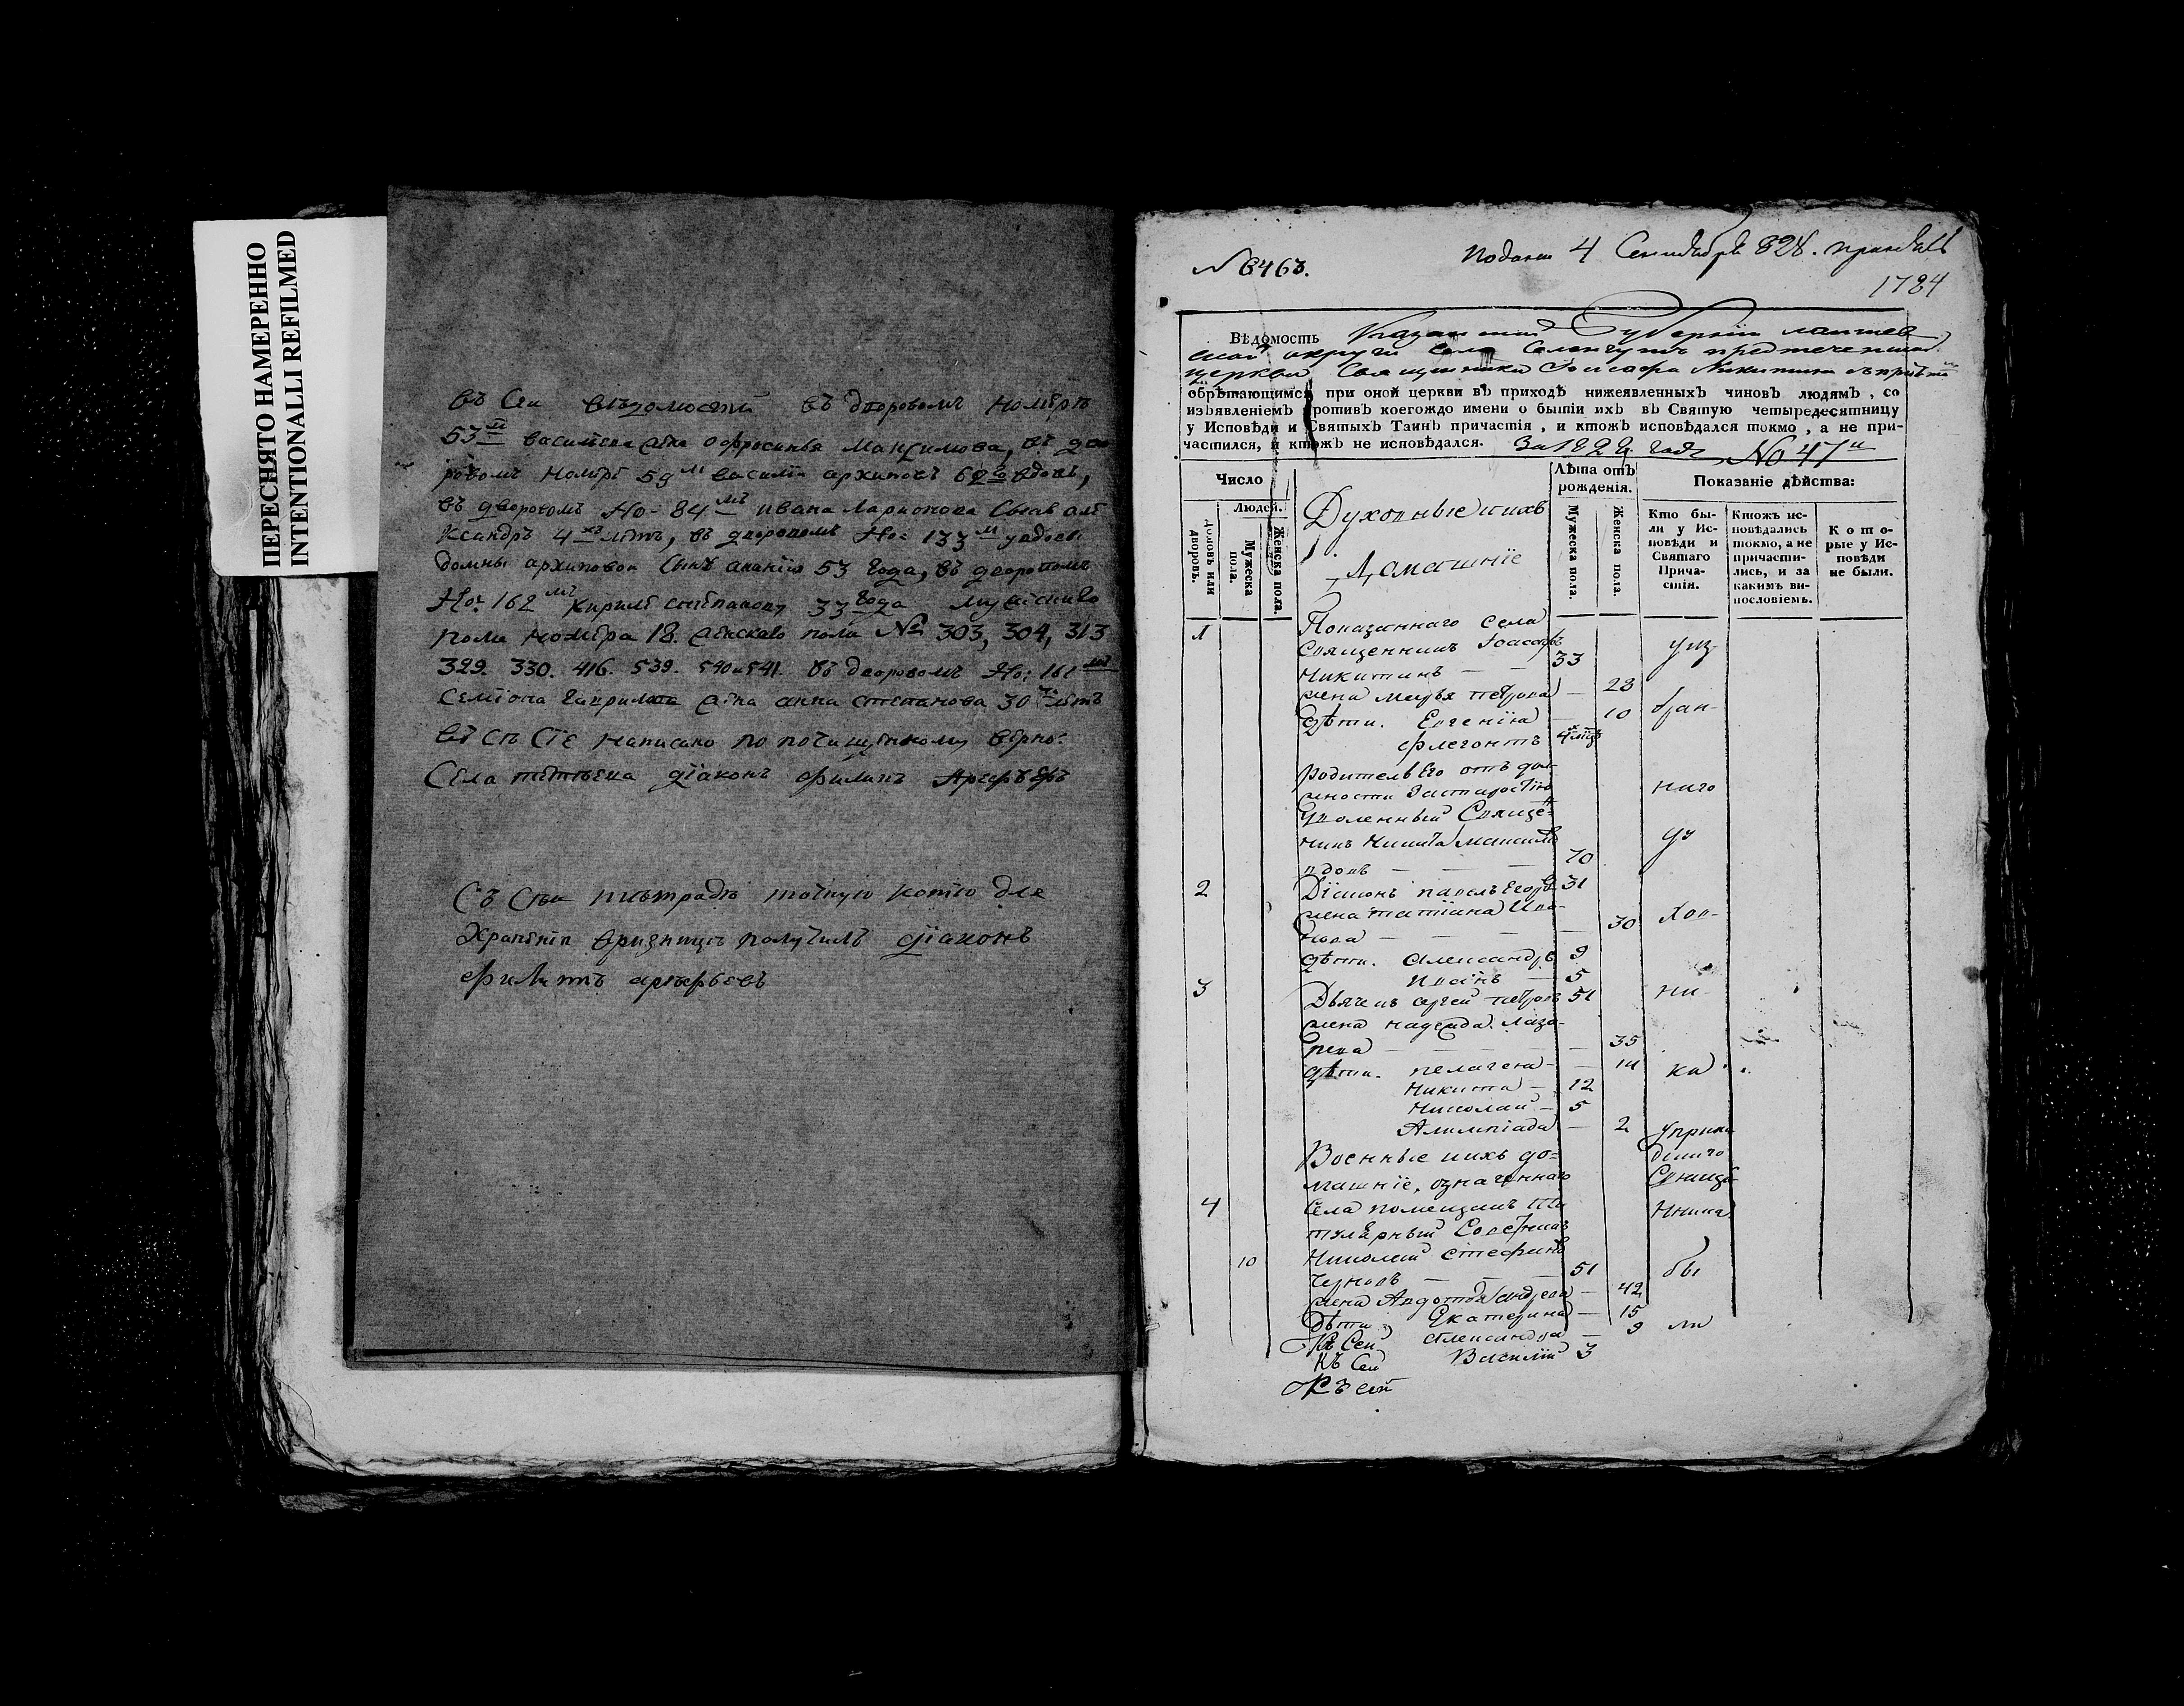 ПЕРЕСНЯТО НАМЕРЕННО
INTENTIONALLI REFILMED
въ Сеи вѣдомости въ дворовомъ Номѣрѣ
53м Васильева жена офросинья Максимова, въ дво
ровомъ Номѣрѣ 59м василій архиповъ 62 вдовъ,
въ дворовомъ Но- 84мъ ивана Ларионова Сынъ але
ксандръ 4хъ лѣтъ, въ дворовомъ Но: 133м у вдовы
домны архиповой Сынъ ананія 53 года, въ дворовомъ
Но: 162мъ кирилѣ степанову 33 года мужескаго
пола номѣра 18. женскаго пола № 303, 304, 313
329. 330. 416. 539. 540 и 541. въ дворовомъ Но: 161мъ
Семіона гаврилова жена анна степанова 30ти лѣтъ
написано по почищенному вѣрно:
Села діаконъ филипъ
Съ Сеи тѣтради точную копію для
Храненія вризницѣ получилъ діаконъ
филипъ
№ 6463.
Подана 4 Сентября 828.
1784
Вѣдомость Казанской Губерніи лаишев
ской округи села предтеченской
церкви Священника Іоасафа Никитина
обрѣтающимся при оной церкви въ приходѣ нижеявленныхъ чиновъ людямъ, со
изъявленіемъ противъ коегождо имени о бытіи ихъ въ Святую четыредесятницу
у Исповѣди и Святыхъ Таинъ причастія, и ктожъ исповѣдался токмо, а не при-
частился, и ктожъ не исповѣдался. За 1828 годъ No 47й
Число
Людей.
домовъ или дворовъ.
Мужеска пола.
Женска пола.
Духовные и ихъ
Домашніе
Лѣта отъ рожденія.
Мужеска пола.
Женска пола.
Показаніе дѣйства:
Кто бы-
ли у Ис-
повѣди и
Святаго
Прича-
стія.
Ктожъ ис-
повѣдались
токмо, а не
причасти-
лись, и за
какимъ ви-
нословіемъ.
Кото-
рые у Ис-
повѣди
не были.
1 Показаннаго Села
Священникъ Іоасафъ
Никитинъ — 33
жена Марья петрова — 28
Дѣти. Евгенія — 10
флегонтъ 4
родитель Его отъ дол-
жности Застаростію
Уволенный Свяще-
никъ Никита
вдовъ — 70
2 Діаконъ павелъ Егоровъ 31
жена татіана Ива-
нова — 30
дѣти. Александръ 9
5
3 Дьячекъ сергей петровъ 51
жена надежда Лаза-
рева — 35
дѣти. пелагея — 14
Никита — 12
Николай — 5
Алимпіада — 2
Военные и ихъ до-
машніе, означеннаго
4 Села помещикъ Ти
тулярный Советникъ
10 Николай стефановъ
Черновъ — 51
жена Авдотья Андреева — 42
Дѣти. Екатерина — 15
Къ Сей Александра — 9
Къ Сей Василій 3
Къ Сей
бы
ли